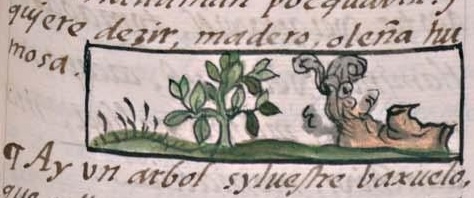 quiere dezir, madero, oleña hu
mosa.
¶ Ay vn arbol syluestre baxuelo,
que